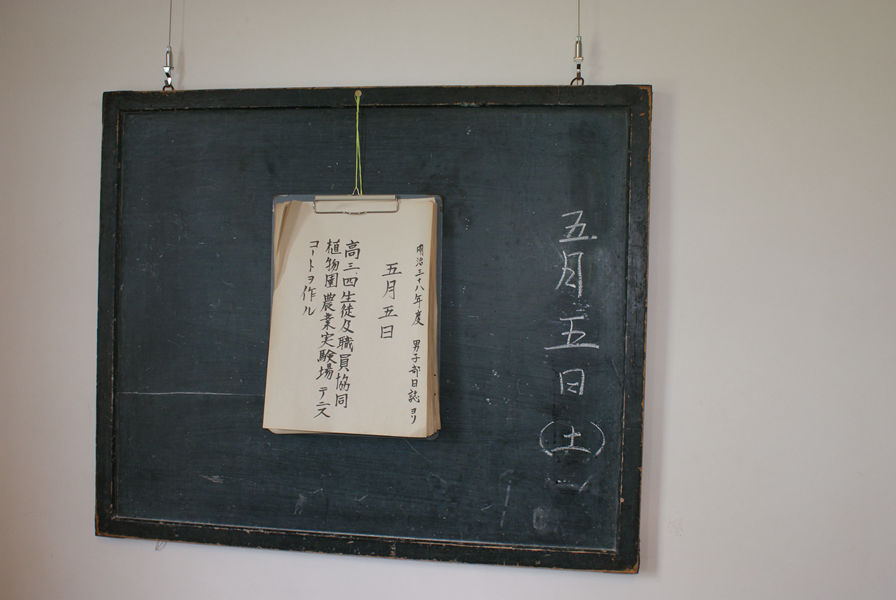 五月五日(土)
明治三十八年度 男子部日誌ヨリ
五月五日
高三、四生徒及職員協同
植物園 農業実験場 テニス
コートヲ作ル